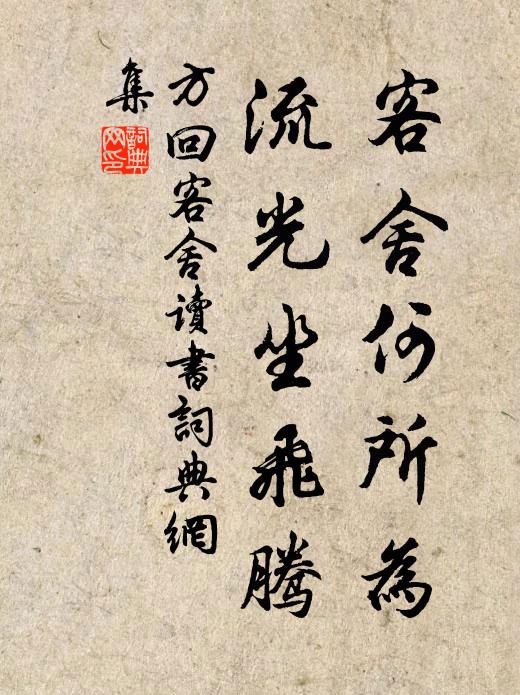 客舍何所為
流光坐飛騰
方回客舍讀書詞典網
集
詞典网印